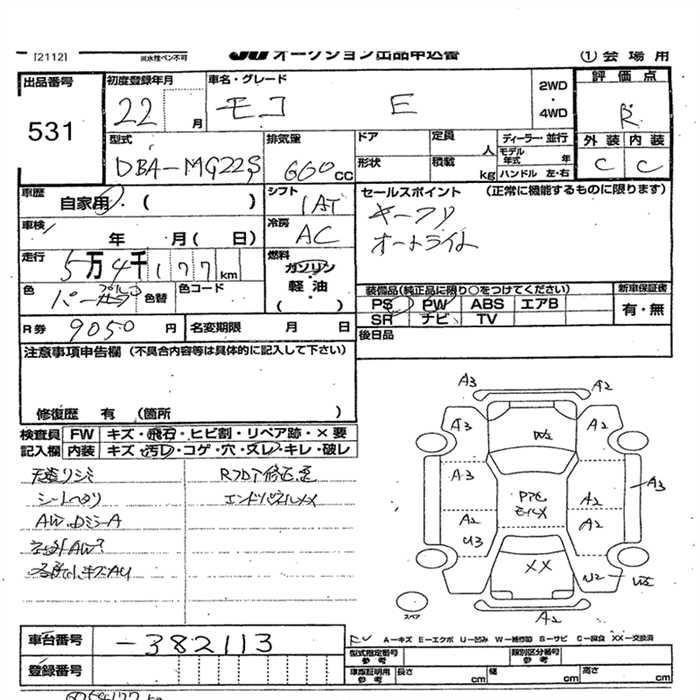 [2112] ※水性ペン不可 JU オークション出品申込書 ① 会場用
出品番号 531
初度登録年月 22 月
車名・グレード モコ E
2WD ・ 4WD
評価点 R
外装 内装
C C
型式 DBA-MG22S
排気量 660 CC
ドア 定員 人
形状 積載 kg
ディーラー・並行
モデル年式 年
ハンドル 左・右
車歴 自家用 ・( )
シフト 1AT
セールスポイント (正常に機能するものに限ります)
キーフリ
オートライト
車検 年 月( 日)
冷房 AC
走行 5万4千177 km
燃料 ガソリン
軽・油
( )
色 パープル 色替 色コード
装備品(純正品に限り○をつけてください) 新車保証書
PS PW ABS エアB
SR ナビ TV
有・無
R券 9050 円 名変期限 月 日
後日品
注意事項申告欄 (不具合内容等は具体的に記入して下さい)
修復歴 有 (箇所 )
検査員記入欄 FW キズ・飛石・ヒビ割・リペア跡・×要
内装 キズ・汚レ・コゲ・穴・スレ・キレ・破レ
天張リジミ
シートヘタリ
AW.ダミーA
社外AW?
各所小キズAU
Rフロア修正歪
エンドパネルXX
A3 A2
A3 A2
A3 A3
A2 A2
U3 A2
XX
A2
スペア
A-キズ E-エクボ U-凹み W-補修跡 S-サビ C-腐食 XX-交換済
車台番号 -382113
型式指定番号 参考 類別区分番号 参考
登録番号
車庫証明用 参考 長さ cm 幅 cm 高さ cm